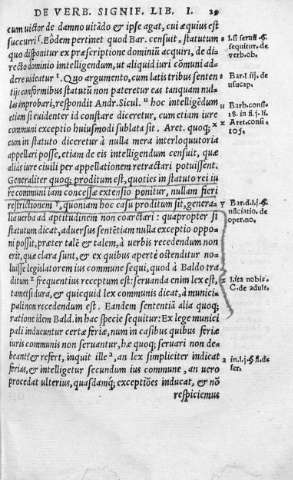 DE VERB. SIGNIF. LIB. I. 29
cum uictor de damno uitãdo & ipse agat, cui æquius est
succurri. Eòdem pertinet quod Bar. censuit, statutum
quo disponitur ex præscriptione dominiũ acquiri, de di-
recto dominio intelligendum, ut aliquid iuri cõmuni ad-
dere uideatur. Quo argumento, cum latis tribus senten-
tijs in causa statutũ non pateretur eas tanquam nul-
las improbari, respondit Andr. Sicul. hoc intelligẽdum
etiam si euidenter id constare diceretur, cum etiam iure
communi exceptio huiusmodi sublata sit. Aret. quoq;
cum in statuto diceretur à nulla mera interloquutoria
appellari posse, etiam de eis intelligendum censuit, quæ
alias iure ciuili per appellationem retractari potuissent.
Generaliter quoq; proditum est, quoties in statuto rei iu
re communi iam concessæ extensio ponitur, nullam fieri
restrictionem, quoniam hoc casu proditum sit, genera-
lia uerba ad aptitudinem non coarctari: quapropter si
statutum dicat, aduersus sentẽtiam nulla exceptio oppo-
ni possit, præter talẽ & talem, à uerbis recedendum non
erit, quæ clara sunt, & ex quibus apertè ostenditur no-
luisse legislatorem ius commune sequi, quod à Baldo tra
ditum frequentius receptum est: seruanda enim lex est,
tametsi dura, & quicquid lex communis dicat, à munici-
pali non recedendum est. Eandem sententiã alia quoq;
ratione idem Bald. in hac specie sequitur: Ex lege munici
pali inducuntur certæ feriæ, num in casibus quibus feriæ
iuris communis non seruantur, hæ quoq; seruari non de-
beant & refert, inquit ille, an lex simpliciter indicat
ferias, & intelligetur secundum ius commune, an uero
procedat ulterius, quasdamq; exceptiões inducat, & nõ
respiciemus
Bar. l si ij. de
usucap.
Barb. cons.
Aret. consi
105.
operi. no.
C. de adult.
fer.